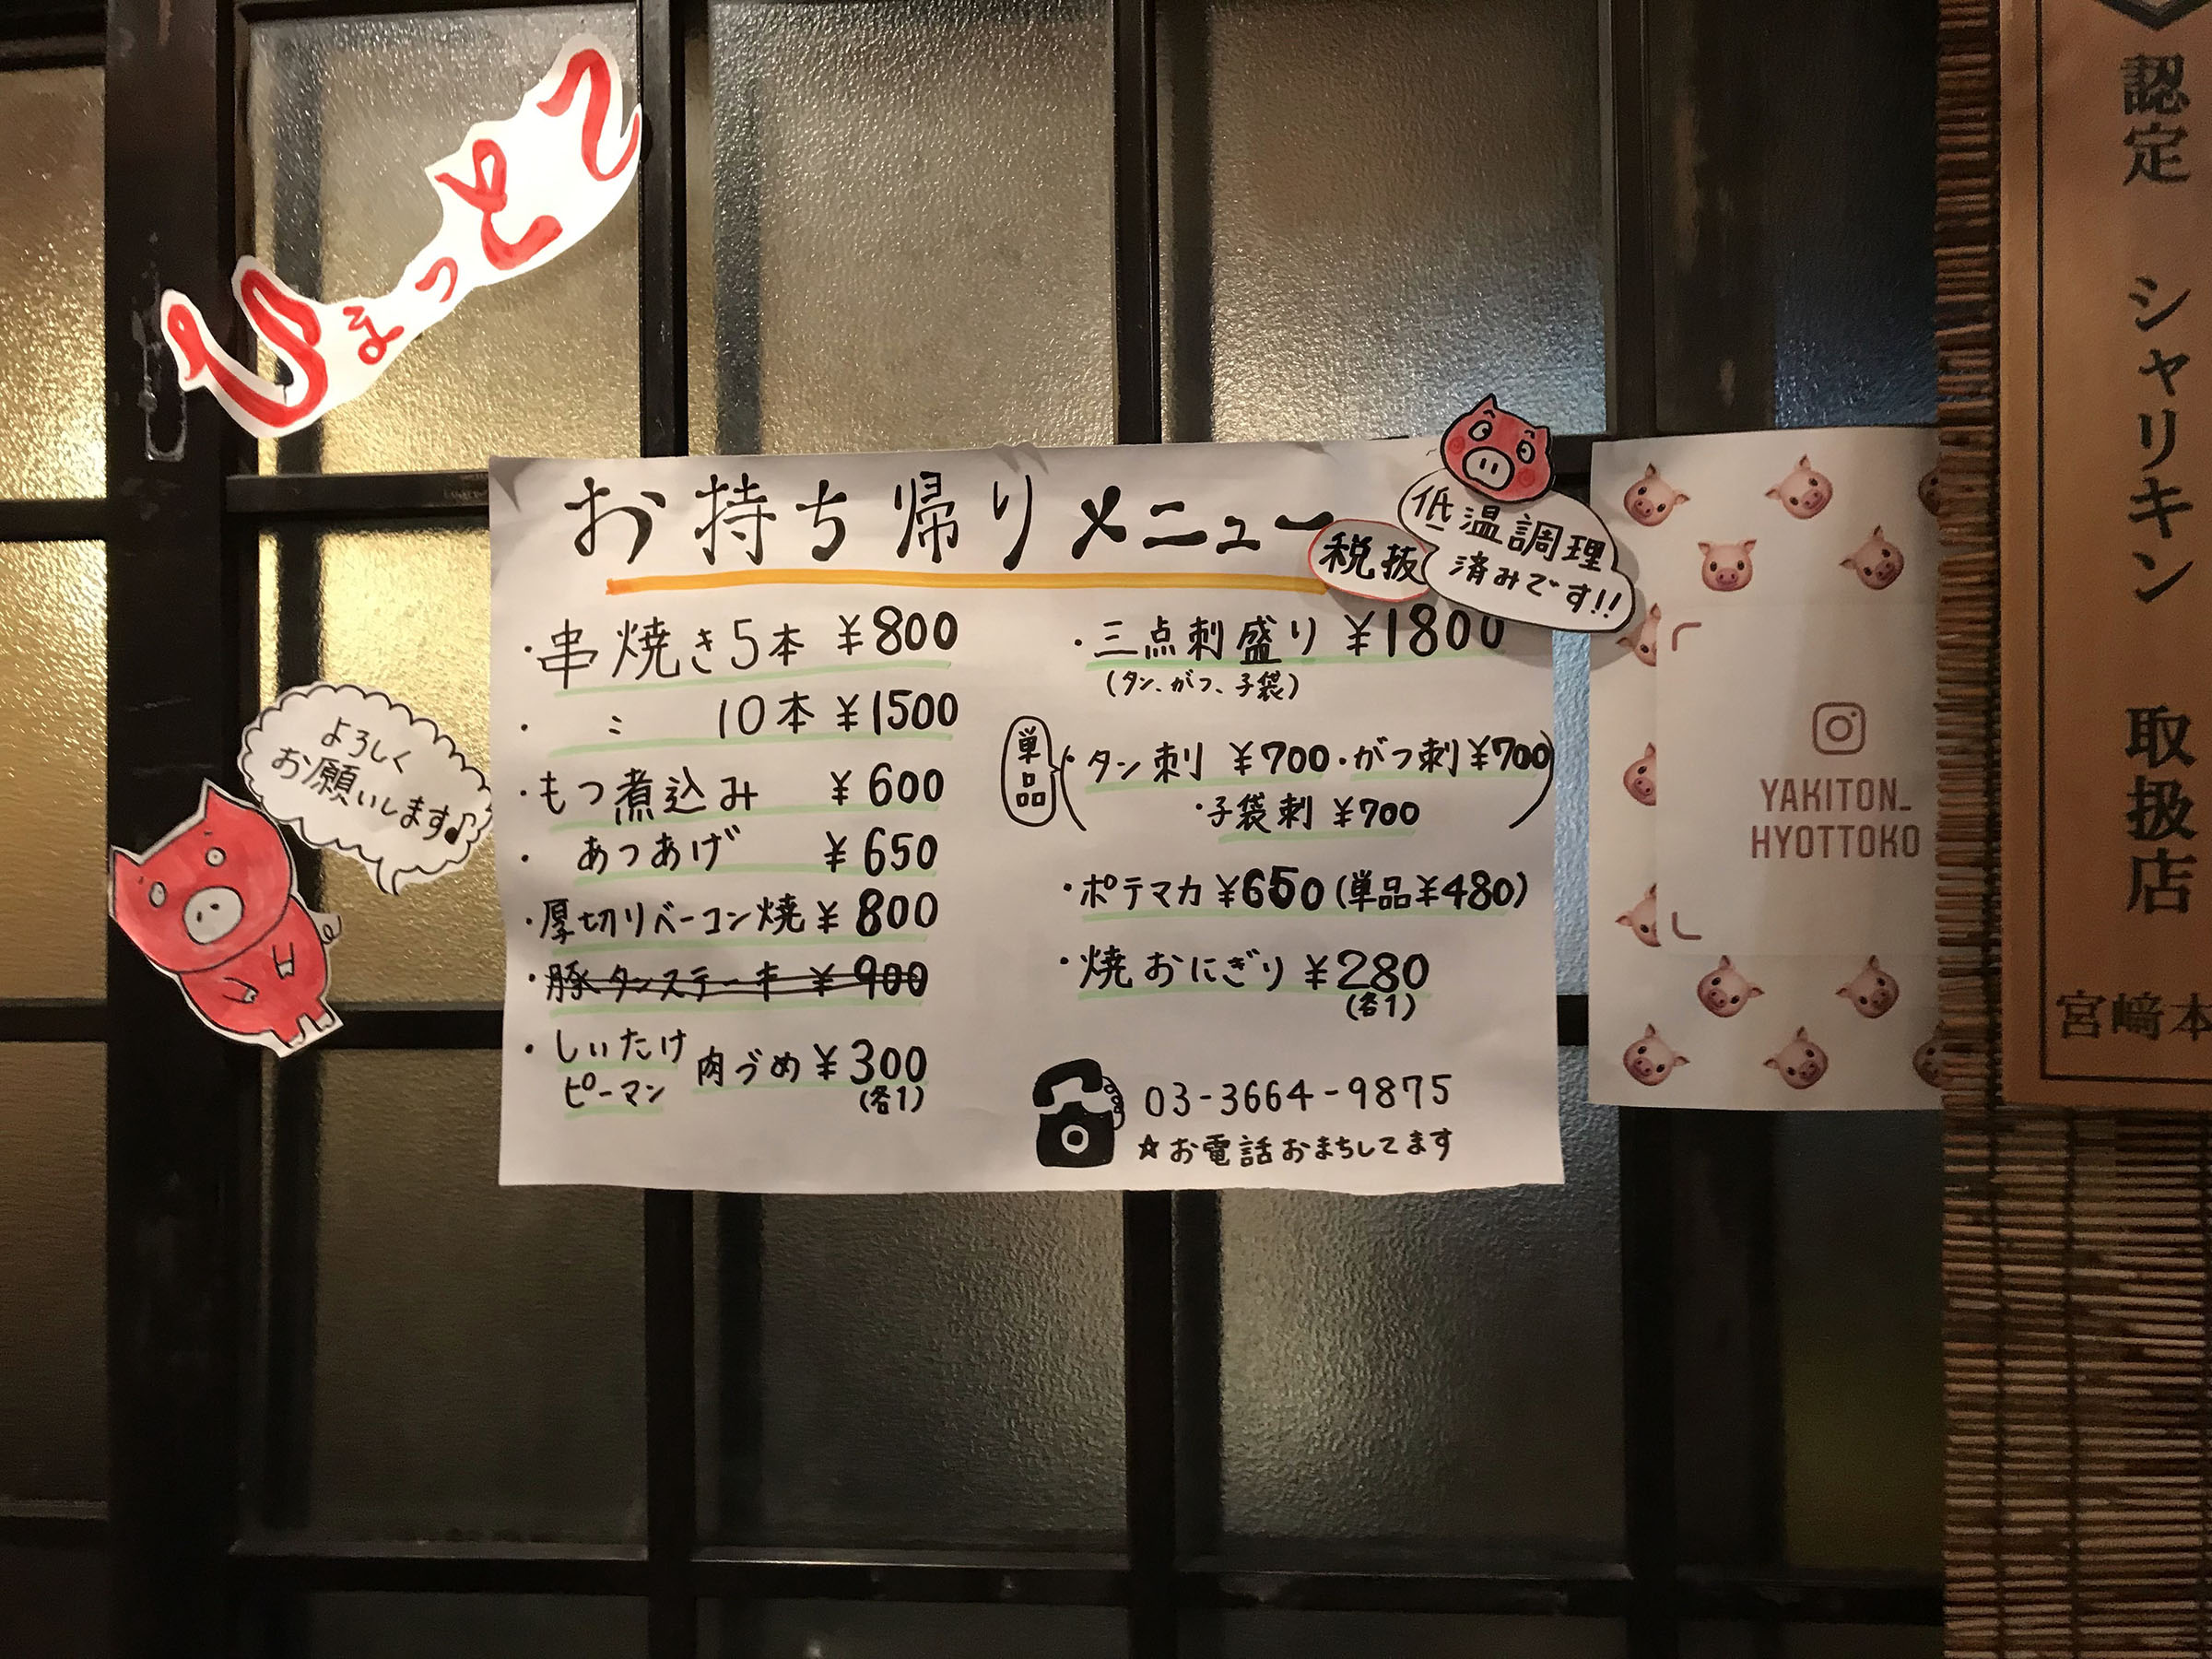 ひょっとこ
お持ち帰りメニュー
税抜
低温調理
済みです!!
・串焼き5本 ¥800
・ 〃 10本 ¥1500
・もつ煮込み ¥600
・あつあげ ¥650
・厚切りベーコン焼 ¥800
・豚タンステーキ ¥900
・しいたけ
ピーマン
肉づめ ¥300
(各1)
・三点刺盛り ¥1800
(タン、がつ、子袋)
単品
・タン刺 ¥700・がつ刺 ¥700
・子袋刺 ¥700
・ポテマカ ¥650(単品¥480)
・焼おにぎり ¥280
(各1)
03-3664-9875
☆お電話おまちしてます
よろしく
お願いします♪
YAKITON_
HYOTTOKO
認定 シャリキン 取扱店
宮﨑本